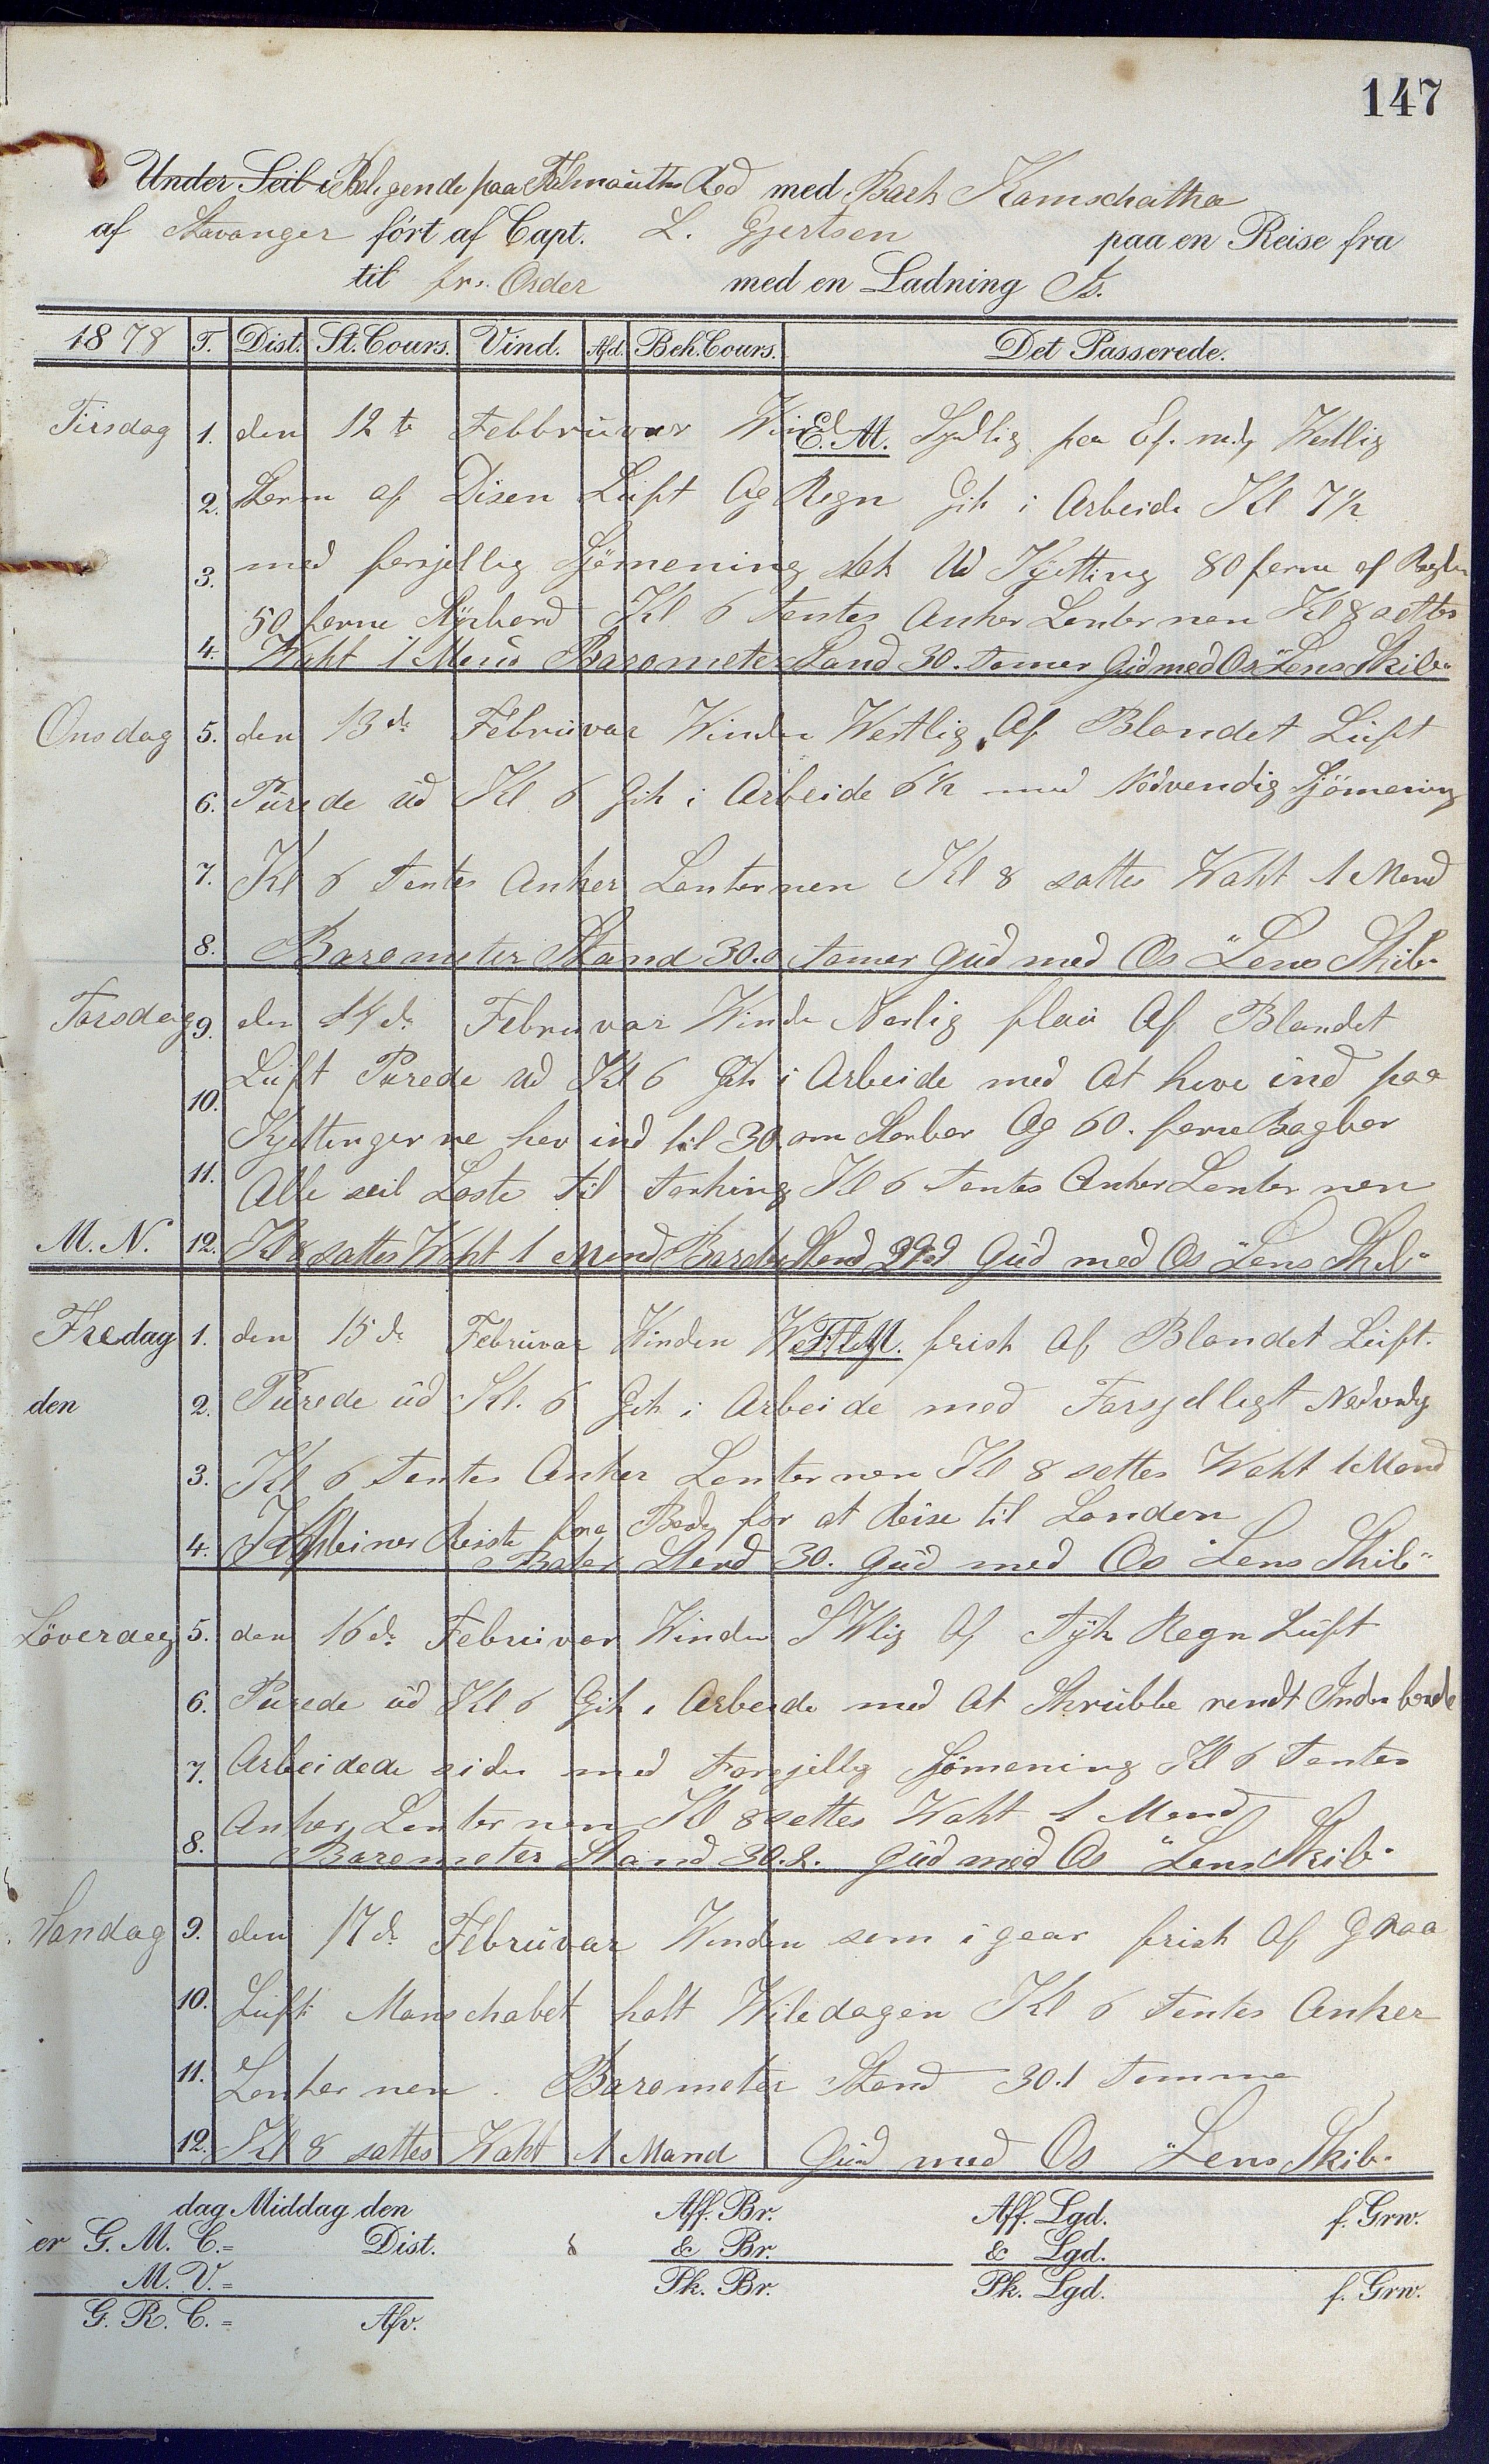 147
Under Seil i Beligende paa Falmouths Red med Bark Kamschatka
af Stavanger ført af Capt. L. Gjertsen paa en Reise fra
til for Order med en Ladning Is.
1878 T. Dist. St. Cours. Vind. Afd. Beh. Cours. Det Passerede.
Tirsdag 1. den 12te Febbruvar Wind E. M. Sydlig paa Ef. md. Westlig
2. Storm af Disen Luft Og Regn Gik i Arbeide Kl 7½
3. med forsjellig Sjömening stek Ud Kjetting 80 favne af Bagbor
50 favne Styrbord Kl 6 Tentes Anker Lenternen Kl 8 settes
4. Waht 1 Mand Barometer Stand 30. Tomer Gud med Os "Lens Skib"
Onsdag 5. den 13de Februvar Winden Westlig Af Blandet Luft
6. Purede ud Kl 6 Gik i Arbeide 6½ med Nödvendig Sjömening
7. Kl 6 Tentes Anker Lenternen Kl 8 sattes Waht 1 Mand
8. Barometer Stand 30.0 Tomer Gud med Os "Lens Skib"
Torsdag 9. den 14de Februvar Winden Norlig flau Af Blandet
10. Luft Purede ud Kl 6 Gik i Arbeide med At hive ind paa
Kjettingerne hev ind til 30 om Storbor Og 60. favne Bagbor
11. Alle seil Löste til Torking Kl 6 Tentes Anker Lenternen
M. N. 12. Kl 8 sattes Waht 1 Mand Stand Gud med Os "Lens Skib"
Fredag 1. den 15de Februvar Winden Westlig F. M. frisk Af Blandet Luft.
den 2. Purede ud Kl. 6 Gik i Arbeide med Forsjelligt
3. Kl 6 Tentes Anker Lenternen Kl 8 settes Waht 1 Mand
4. Reiste fra Bord for at Reise til London
Stand 30. Gud med Os "Lens Skib"
Löverdag 5. den 16de Februvar Winden SWlig Af Tÿk Regn Luft
6. Purede ud Kl 6 Gik i Arbeide med At Skrubbe rendt Inden borde
7. Arbeidede siden med Forsjellig Sjömening Kl 6 Tentes
Anker Lenternen Kl 8 settes Waht 1 Mand
8. Barometer Stand 30.2. Gud med Os "Lens Skib"
Söndag 9. den 17de Februvar Winden som i gaar frisk Af Graa
10. Luft Manschabet holt Wiledagen Kl 6 Tentes Anker
11. Lenternen. Barometer Stand 30.1 Tomme
12. Kl 8 sattes Waht 1 Mand Gud med Os "Lens Skib"
dag Middag den Aff. Br. Aff. Lgd. f. Grw.
er G. M. C.= Dist. & Br. & Lgd.
M. V.= Pk. Br. Pk. Lgd. f. Grw.
G. R. C.= Afv.